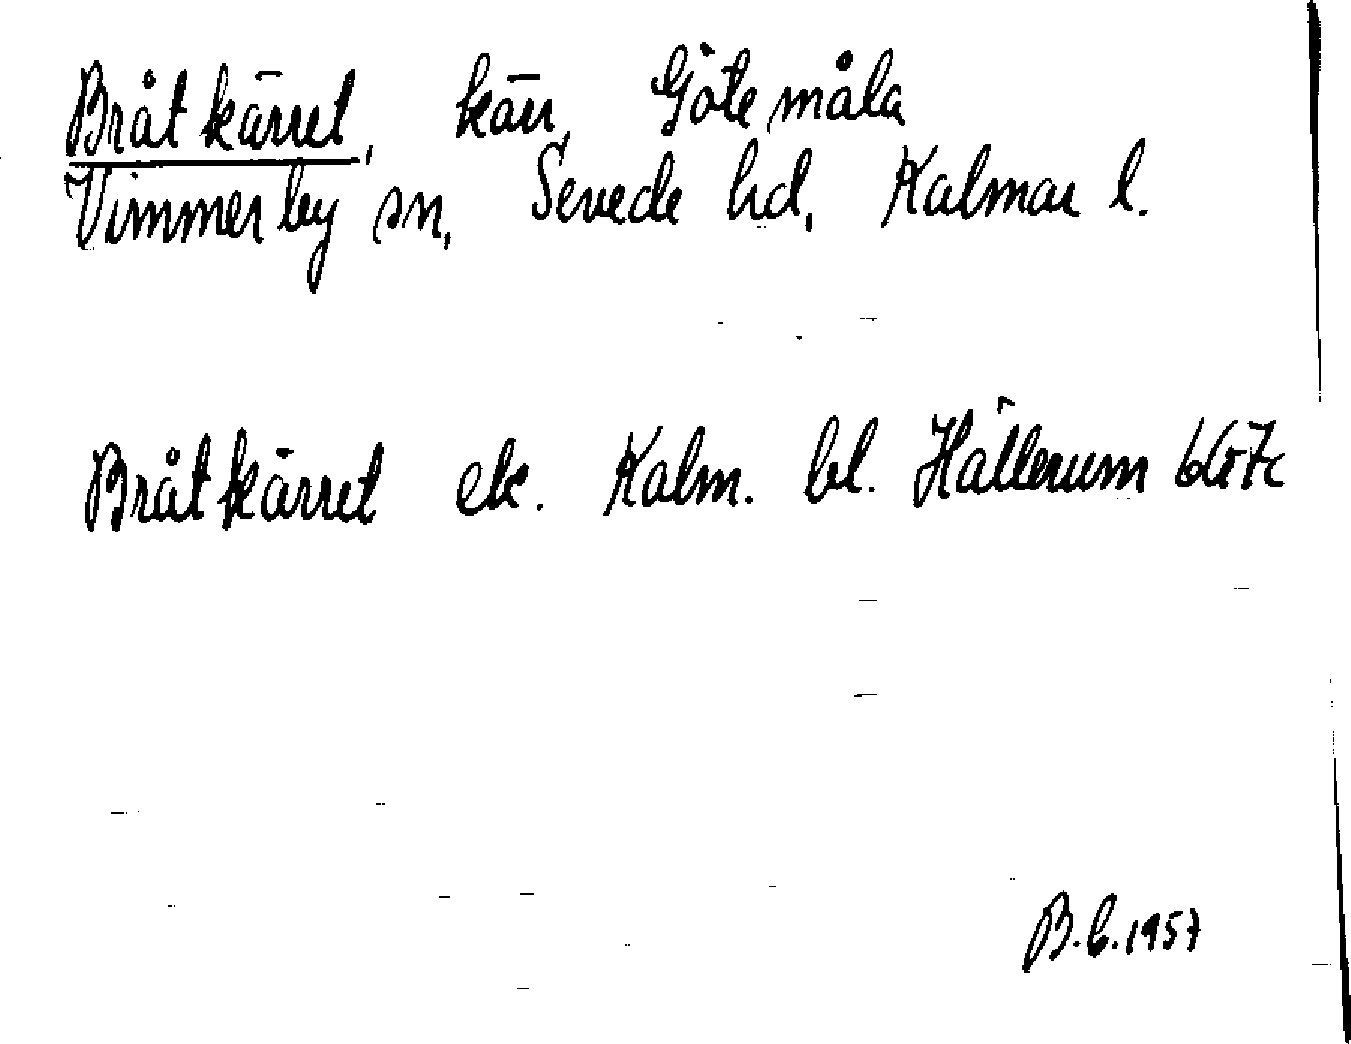 Bråtkärret, kärr, Götemåla
Vimmerby sn, Sevede hd, Kalmar l.
Bråtkärret ek. Kalm. bl. Hällerum 6G7c
B.C.1957